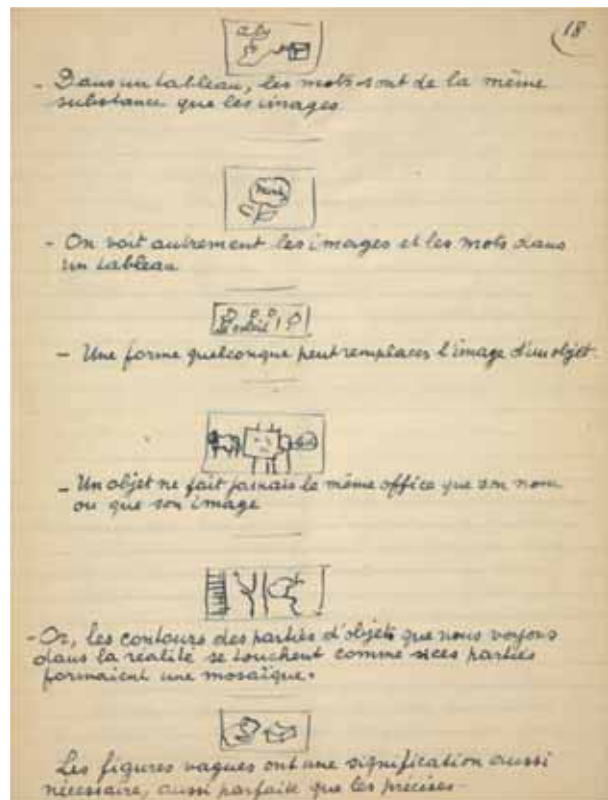 18
- Dans un tableau, les mots sont de la même
substance que les images
- On voit autrement les images et les mots dans
un tableau
- Une forme quelconque peut remplacer l'image d'un objet
- Un objet ne fait jamais le même office que son nom
ou que son image
- Or, les contours des parties d'objets que nous voyons
dans la réalité se touchent comme si ces parties
formaient une mosaïque.
Les figures vagues ont une signification aussi
nécessaire, aussi parfaite que les précises